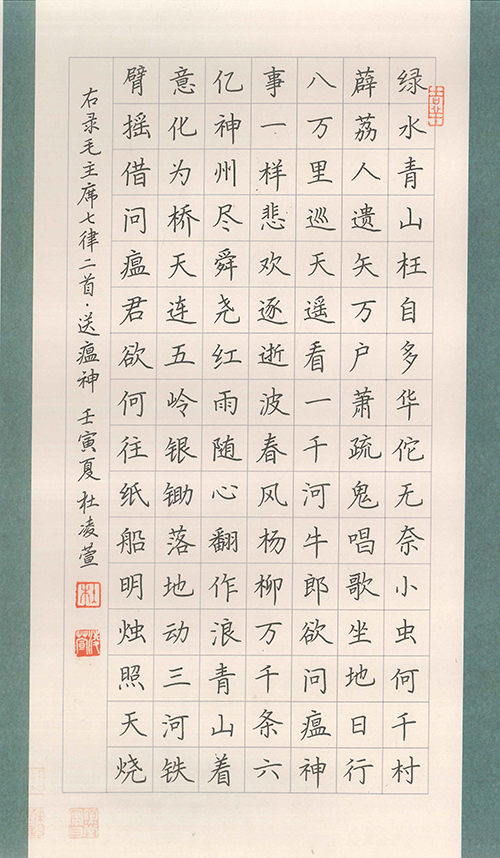 绿水青山枉自多华佗无奈小虫何千村
薜荔人遗矢万户萧疏鬼唱歌坐地日行
八万里巡天遥看一千河牛郎欲问瘟神
事一样悲欢逐逝波春风杨柳万千条六
亿神州尽舜尧红雨随心翻作浪青山着
意化为桥天连五岭银锄落地动三河铁
臂摇借问瘟君欲何往纸船明烛照天烧
右录毛主席七律二首·送瘟神 壬寅夏杜凌萱
杜
凌萱